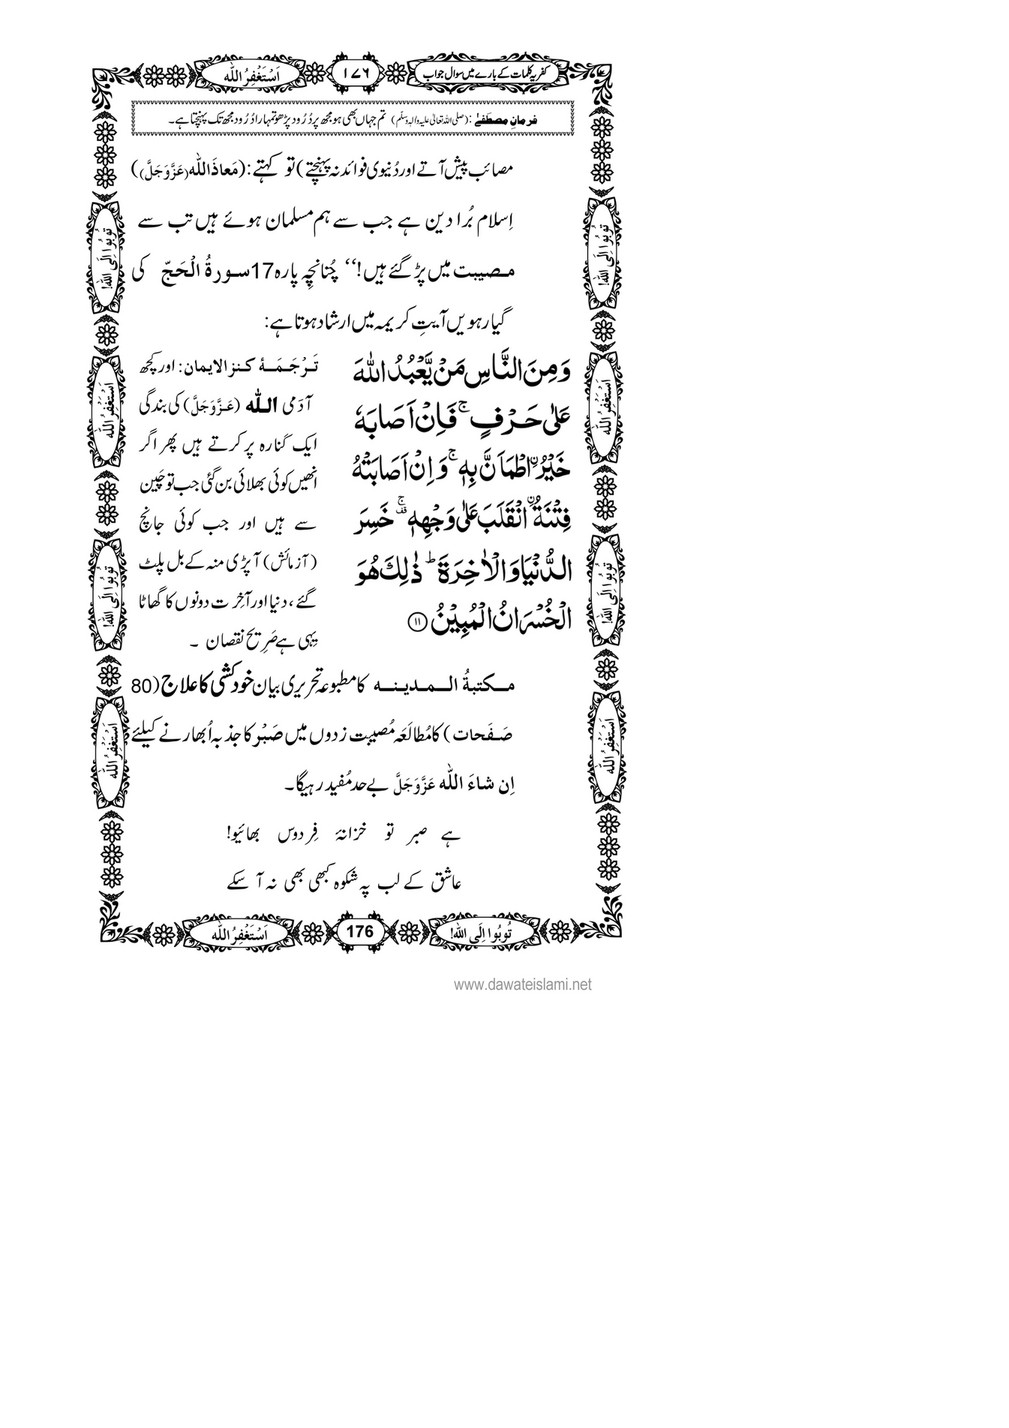 کفریہ کلمات کے بارے میں سوال جواب
۱۷۶
اَسْتَغْفِرُ اللہ
فرمانِ مصطفےٰ : (صلی اللہ تعالیٰ علیہ والہٖ وسلّم) تم جہاں بھی ہو مجھ پر دُرُود پڑھو تمہارا دُرُود مجھ تک پہنچتا ہے۔
مصائب پیش آتے اور دُنیوی فوائد نہ پہنچتے) تو کہتے: (مَعاذَ اللہ (عَزَّوَجَلَّ))
اِسلام بُرا دین ہے جب سے ہم مسلمان ہوئے ہیں تب سے
مصیبت میں پڑ گئے ہیں!‘‘ چُنانچِہ پارہ 17 سورۃُ الْحَجّ کی
گیارہویں آیتِ کریمہ میں ارشاد ہوتا ہے:
وَمِنَ النَّاسِ مَنْ یَّعْبُدُ اللّٰهَ
عَلٰى حَرْفٍ ۚ فَاِنْ اَصَابَهٗ
خَیْرُ ۨاطْمَاَنَّ بِهٖ ۚ وَ اِنْ اَصَابَتْهُ
فِتْنَةُ ۨانْقَلَبَ عَلٰى وَجْهِهٖ ۚ۫ خَسِرَ
الدُّنْیَا وَ الْاٰخِرَةَ ؕ ذٰلِكَ هُوَ
الْخُسْرَانُ الْمُبِیْنُ ﴿۱۱﴾
تَرْجَمَۂ کنز الایمان: اور کچھ
آدَمی اللہ (عَزَّوَجَلَّ) کی بندگی
ایک کنارہ پر کرتے ہیں پھر اگر
انھیں کوئی بھلائی بن گئی جب تو چَین
سے ہیں اور جب کوئی جانچ
(آزمائش) آ پڑی منہ کے بل پلٹ
گئے، دنیا اور آخِرت دونوں کا گھاٹا
یہی ہے صَرِیح نقصان ۔
مکتبۃُ المدینہ کا مطبوعہ تحریری بیان خود کشی کا علاج (80
صَفَحات) کا مُطالَعَہ مُصیبت زدوں میں صَبْر کا جذبہ اُبھارنے کیلئے
اِن شاءَ اللہ عَزَّوَجَلَّ بے حد مُفید رہیگا۔
ہے صبر تو خزانۂ فِردوس بھائیو!
عاشق کے لب پہ شکوہ کبھی بھی نہ آ سکے
تُوبُوا اِلَی اللہ!
اَسْتَغْفِرُ اللہ
تُوبُوا اِلَی اللہ!
اَسْتَغْفِرُ اللہ
تُوبُوا اِلَی اللہ!
اَسْتَغْفِرُ اللہ
تُوبُوا اِلَی اللہ!
اَسْتَغْفِرُ اللہ
تُوبُوا اِلَی اللہ!
176
اَسْتَغْفِرُ اللہ
www.dawateislami.net